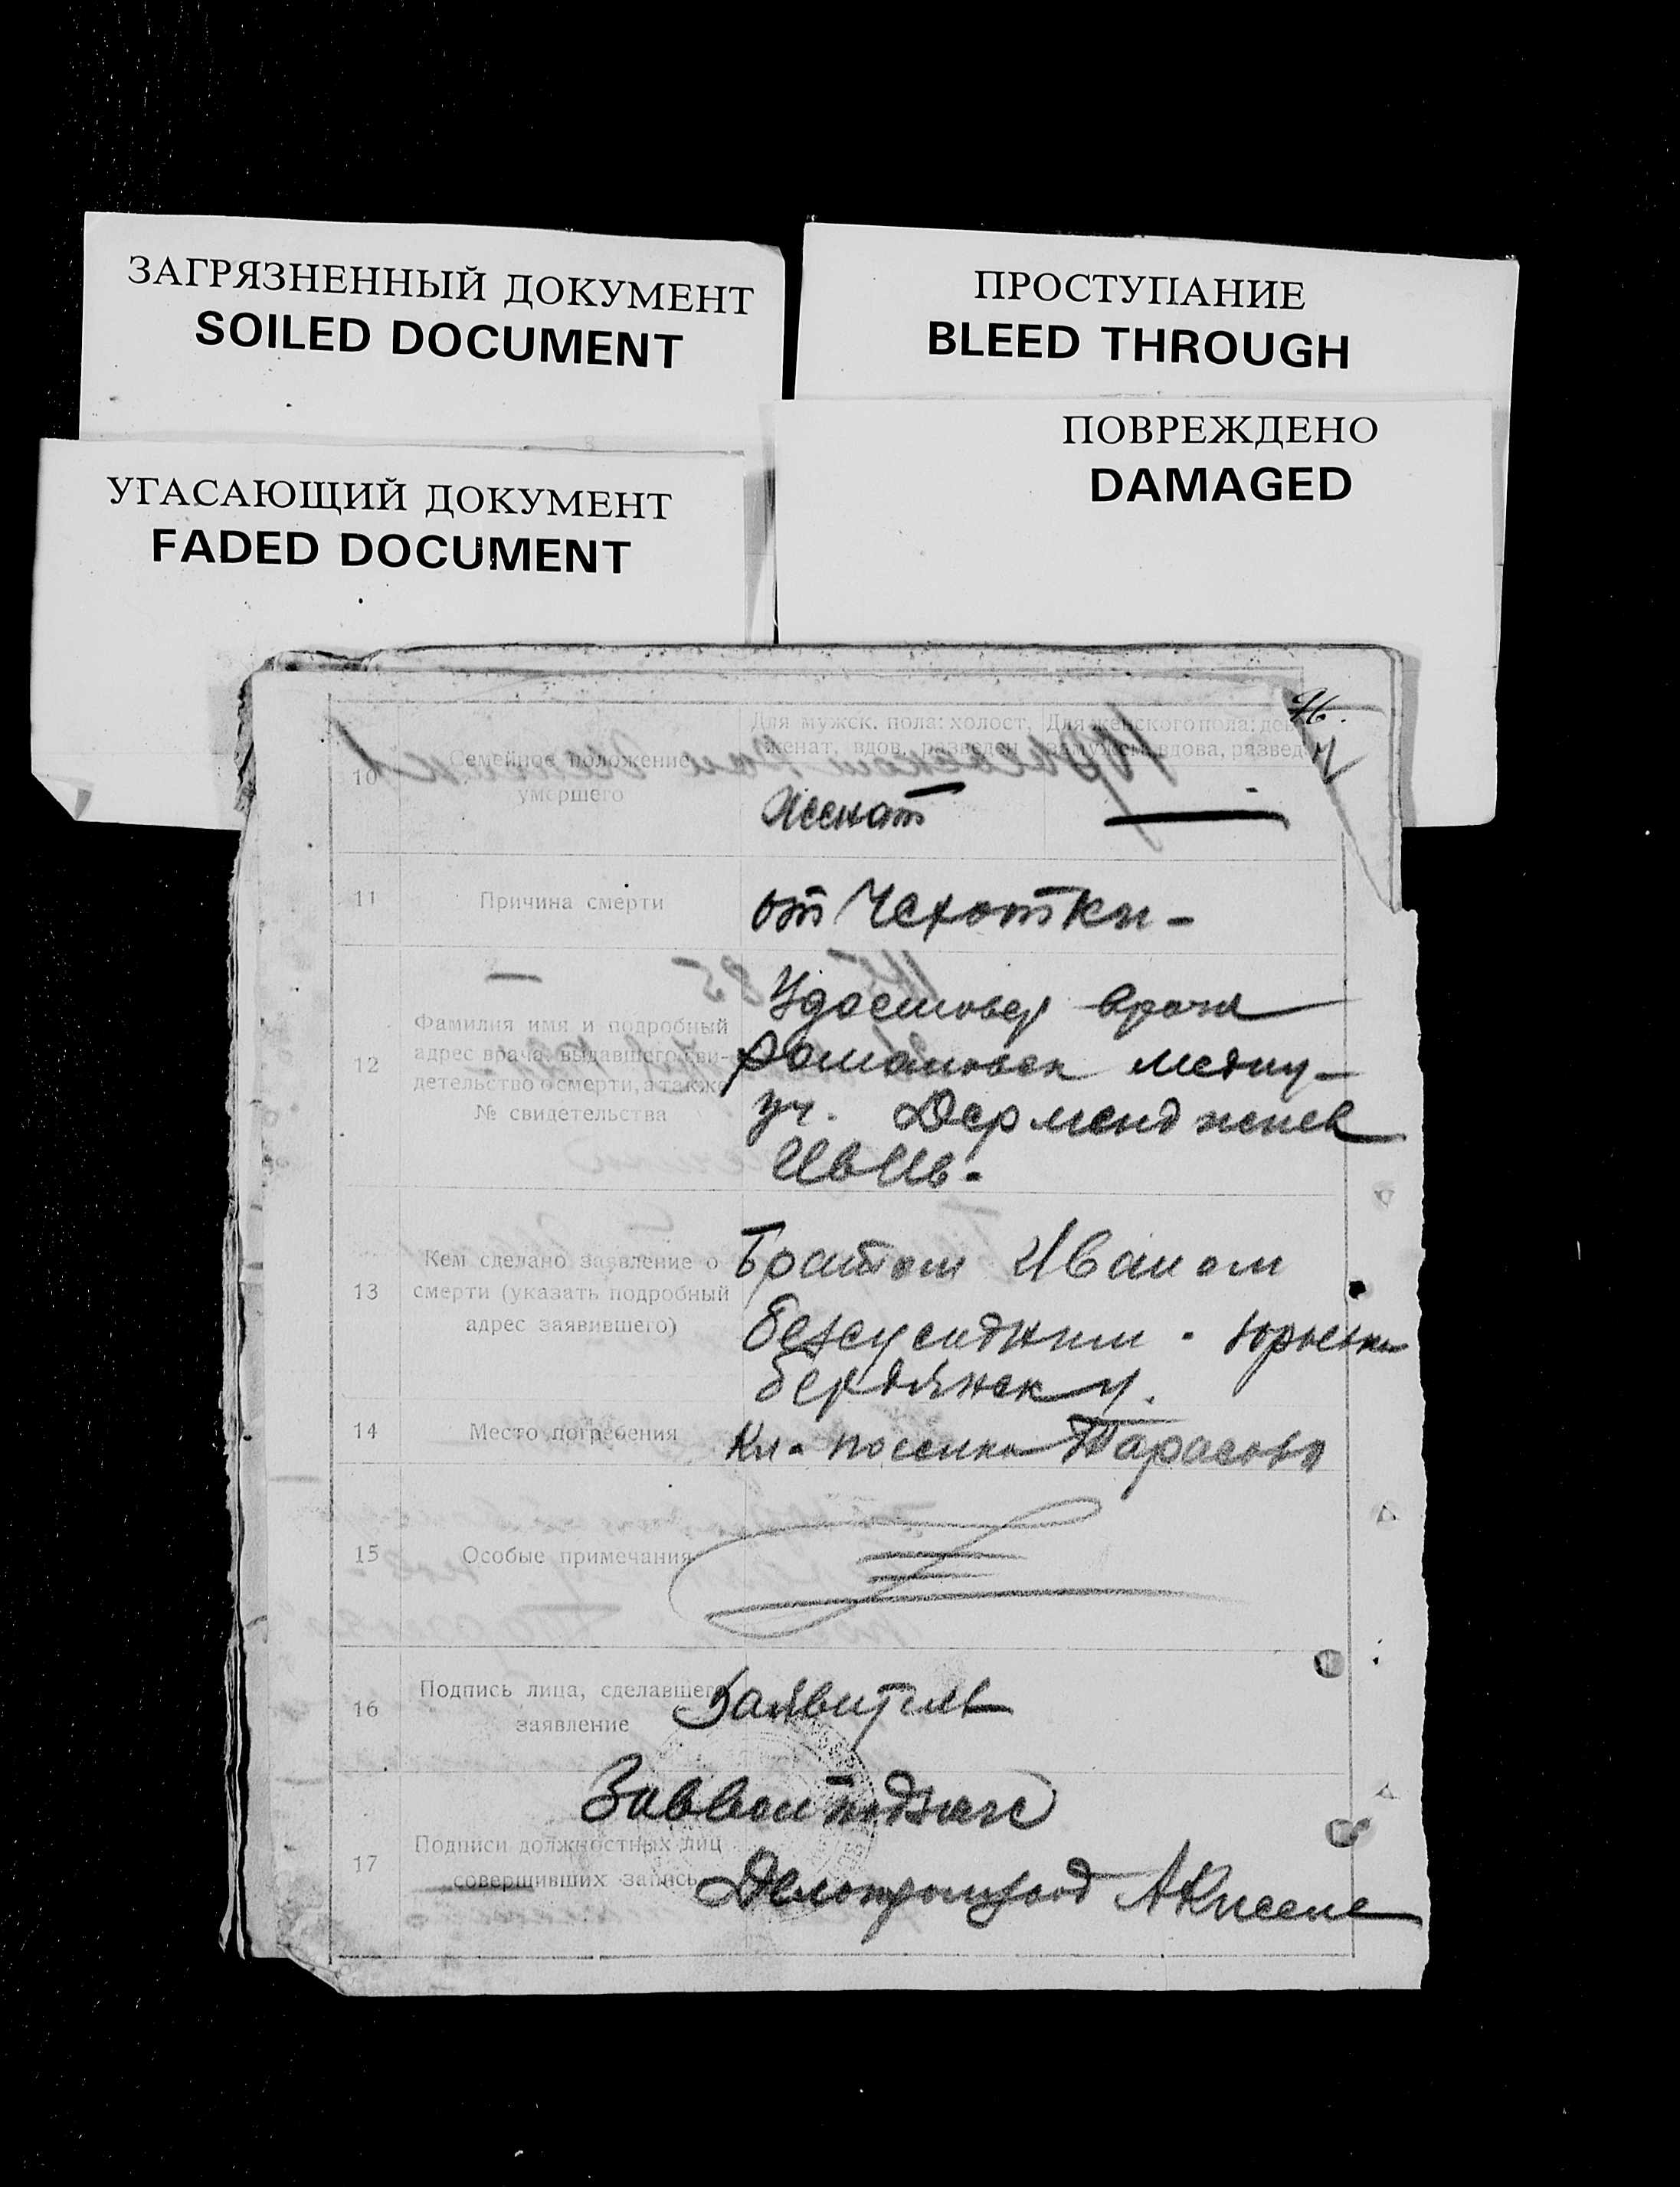 ЗАГРЯЗНЕННЫЙ ДОКУМЕНТ
SOILED DOCUMENT
ПРОСТУПАНИЕ
BLEED THROUGH
ПОВРЕЖДЕНО
DAMAGED
УГАСАЮЩИЙ ДОКУМЕНТ
FADED DOCUMENT
96.
10
Семейное положение
умершего
Для мужск. пола: холост,
женат, вдов, разведен
Для женского пола: дев
замужем, вдова, развед
Женат
11
Причина смерти
от Чехотки -
12
Фамилия имя и подробный
адрес врача, выдавшего сви-
детельство о смерти, а также
№ свидетельства
Удостовер врача
Романовск
уч. Дерменджиев
Ив Ив.
13
Кем сделано заявление о
смерти (указать подробный
адрес заявившего)
Братом Иваном
Бердянск
14
Место погребения
Кл. поселка Тарасовка
15
Особые примечания
16
Подпись лица, сделавшего
заявление
Заявитель
17
Подписи должностных лиц
совершивших запись
Делопроизвод